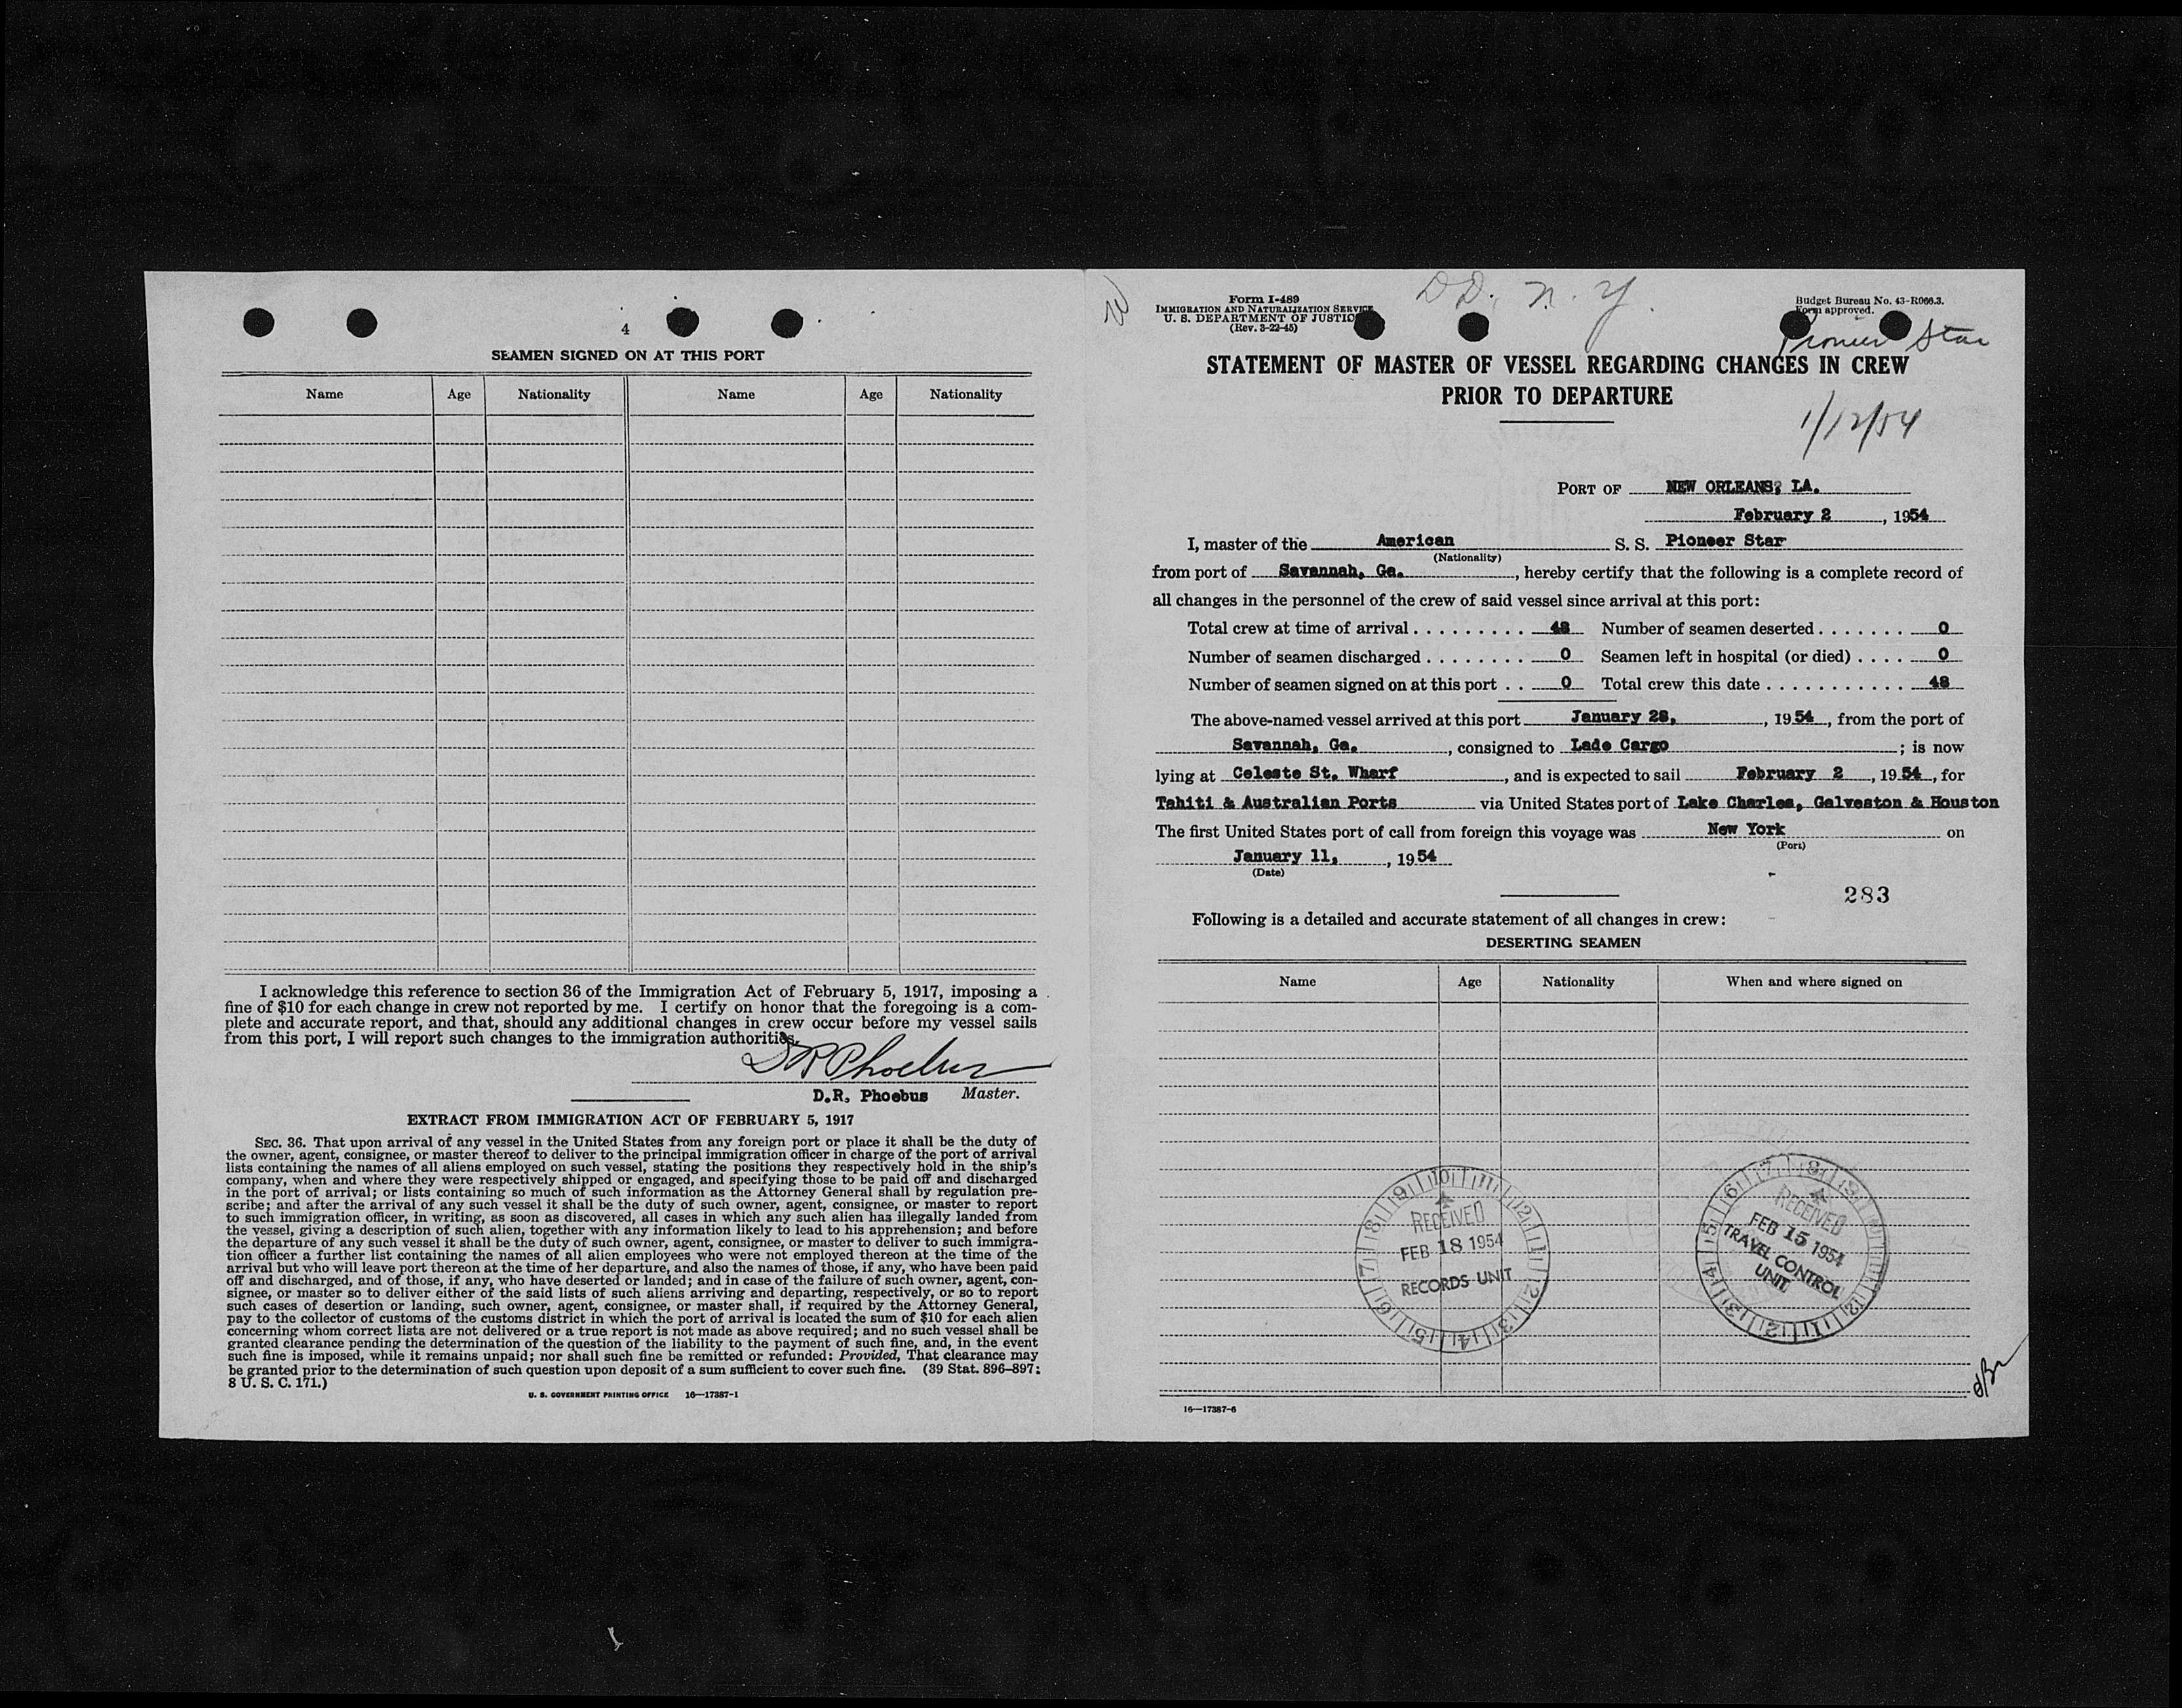 4
SEAMEN SIGNED ON AT THIS PORT
Name Age Nationality Name Age Nationality
I acknowledge this reference to section 36 of the Immigration Act of February 5, 1917, imposing a
fine of $10 for each change in crew not reported by me. I certify on honor that the foregoing is a com-
plete and accurate report, and that, should any additional changes in crew occur before my vessel sails
from this port, I will report such changes to the immigration authorities.
D R Phoebus
D.R. Phoebus Master.
EXTRACT FROM IMMIGRATION ACT OF FEBRUARY 5, 1917
SEC. 36. That upon arrival of any vessel in the United States from any foreign port or place it shall be the duty of
the owner, agent, consignee, or master thereof to deliver to the principal immigration officer in charge of the port of arrival
lists containing the names of all aliens employed on such vessel, stating the positions they respectively hold in the ship's
company, when and where they were respectively shipped or engaged, and specifying those to be paid off and discharged
in the port of arrival; or lists containing so much of such information as the Attorney General shall by regulation pre-
scribe; and after the arrival of any such vessel it shall be the duty of such owner, agent, consignee, or master to report
to such immigration officer, in writing, as soon as discovered, all cases in which any such alien has illegally landed from
the vessel, giving a description of such alien, together with any information likely to lead to his apprehension; and before
the departure of any such vessel it shall be the duty of such owner, agent, consignee, or master to deliver to such immigra-
tion officer a further list containing the names of all alien employees who were not employed thereon at the time of the
arrival but who will leave port thereon at the time of her departure, and also the names of those, if any, who have been paid
off and discharged, and of those, if any, who have deserted or landed; and in case of the failure of such owner, agent, con-
signee, or master so to deliver either of the said lists of such aliens arriving and departing, respectively, or so to report
such cases of desertion or landing, such owner, agent, consignee, or master shall, if required by the Attorney General,
pay to the collector of customs of the customs district in which the port of arrival is located the sum of $10 for each alien
concerning whom correct lists are not delivered or a true report is not made as above required; and no such vessel shall be
granted clearance pending the determination of the question of the liability to the payment of such fine, and, in the event
such fine is imposed, while it remains unpaid; nor shall such fine be remitted or refunded: Provided, That clearance may
be granted prior to the determination of such question upon deposit of a sum sufficient to cover such fine. (39 Stat. 896–897;
8 U. S. C. 171.)
U. S. GOVERNMENT PRINTING OFFICE 16—17387-1
Form I-489
IMMIGRATION AND NATURALIZATION SERVICE
U. S. DEPARTMENT OF JUSTICE
(Rev. 3-22-45)
D.D. N.Y.
Budget Bureau No. 43-R066.3.
Form approved.
Pioneer Star
STATEMENT OF MASTER OF VESSEL REGARDING CHANGES IN CREW
PRIOR TO DEPARTURE
1/12/54
PORT OF NEW ORLEANS, LA.
February 2, 1954
I, master of the American S. S. Pioneer Star
(Nationality)
from port of Savannah, Ga., hereby certify that the following is a complete record of
all changes in the personnel of the crew of said vessel since arrival at this port:
Total crew at time of arrival . . . . . . . . . 48 Number of seamen deserted . . . . . . . 0
Number of seamen discharged . . . . . . . . 0 Seamen left in hospital (or died) . . . . 0
Number of seamen signed on at this port . . 0 Total crew this date . . . . . . . . . . . 48
The above-named vessel arrived at this port January 28, 1954, from the port of
Savannah, Ga., consigned to Lade Cargo; is now
lying at Celeste St. Wharf, and is expected to sail February 2, 1954, for
Tahiti & Australian Ports via United States port of Lake Charles, Galveston & Houston
The first United States port of call from foreign this voyage was New York on
(Port)
January 11, 1954
(Date)
283
Following is a detailed and accurate statement of all changes in crew:
DESERTING SEAMEN
Name Age Nationality When and where signed on
RECEIVED
FEB 18 1954
RECORDS UNIT
RECEIVED
FEB 15 1954
TRAVEL CONTROL
UNIT
16—17387-6